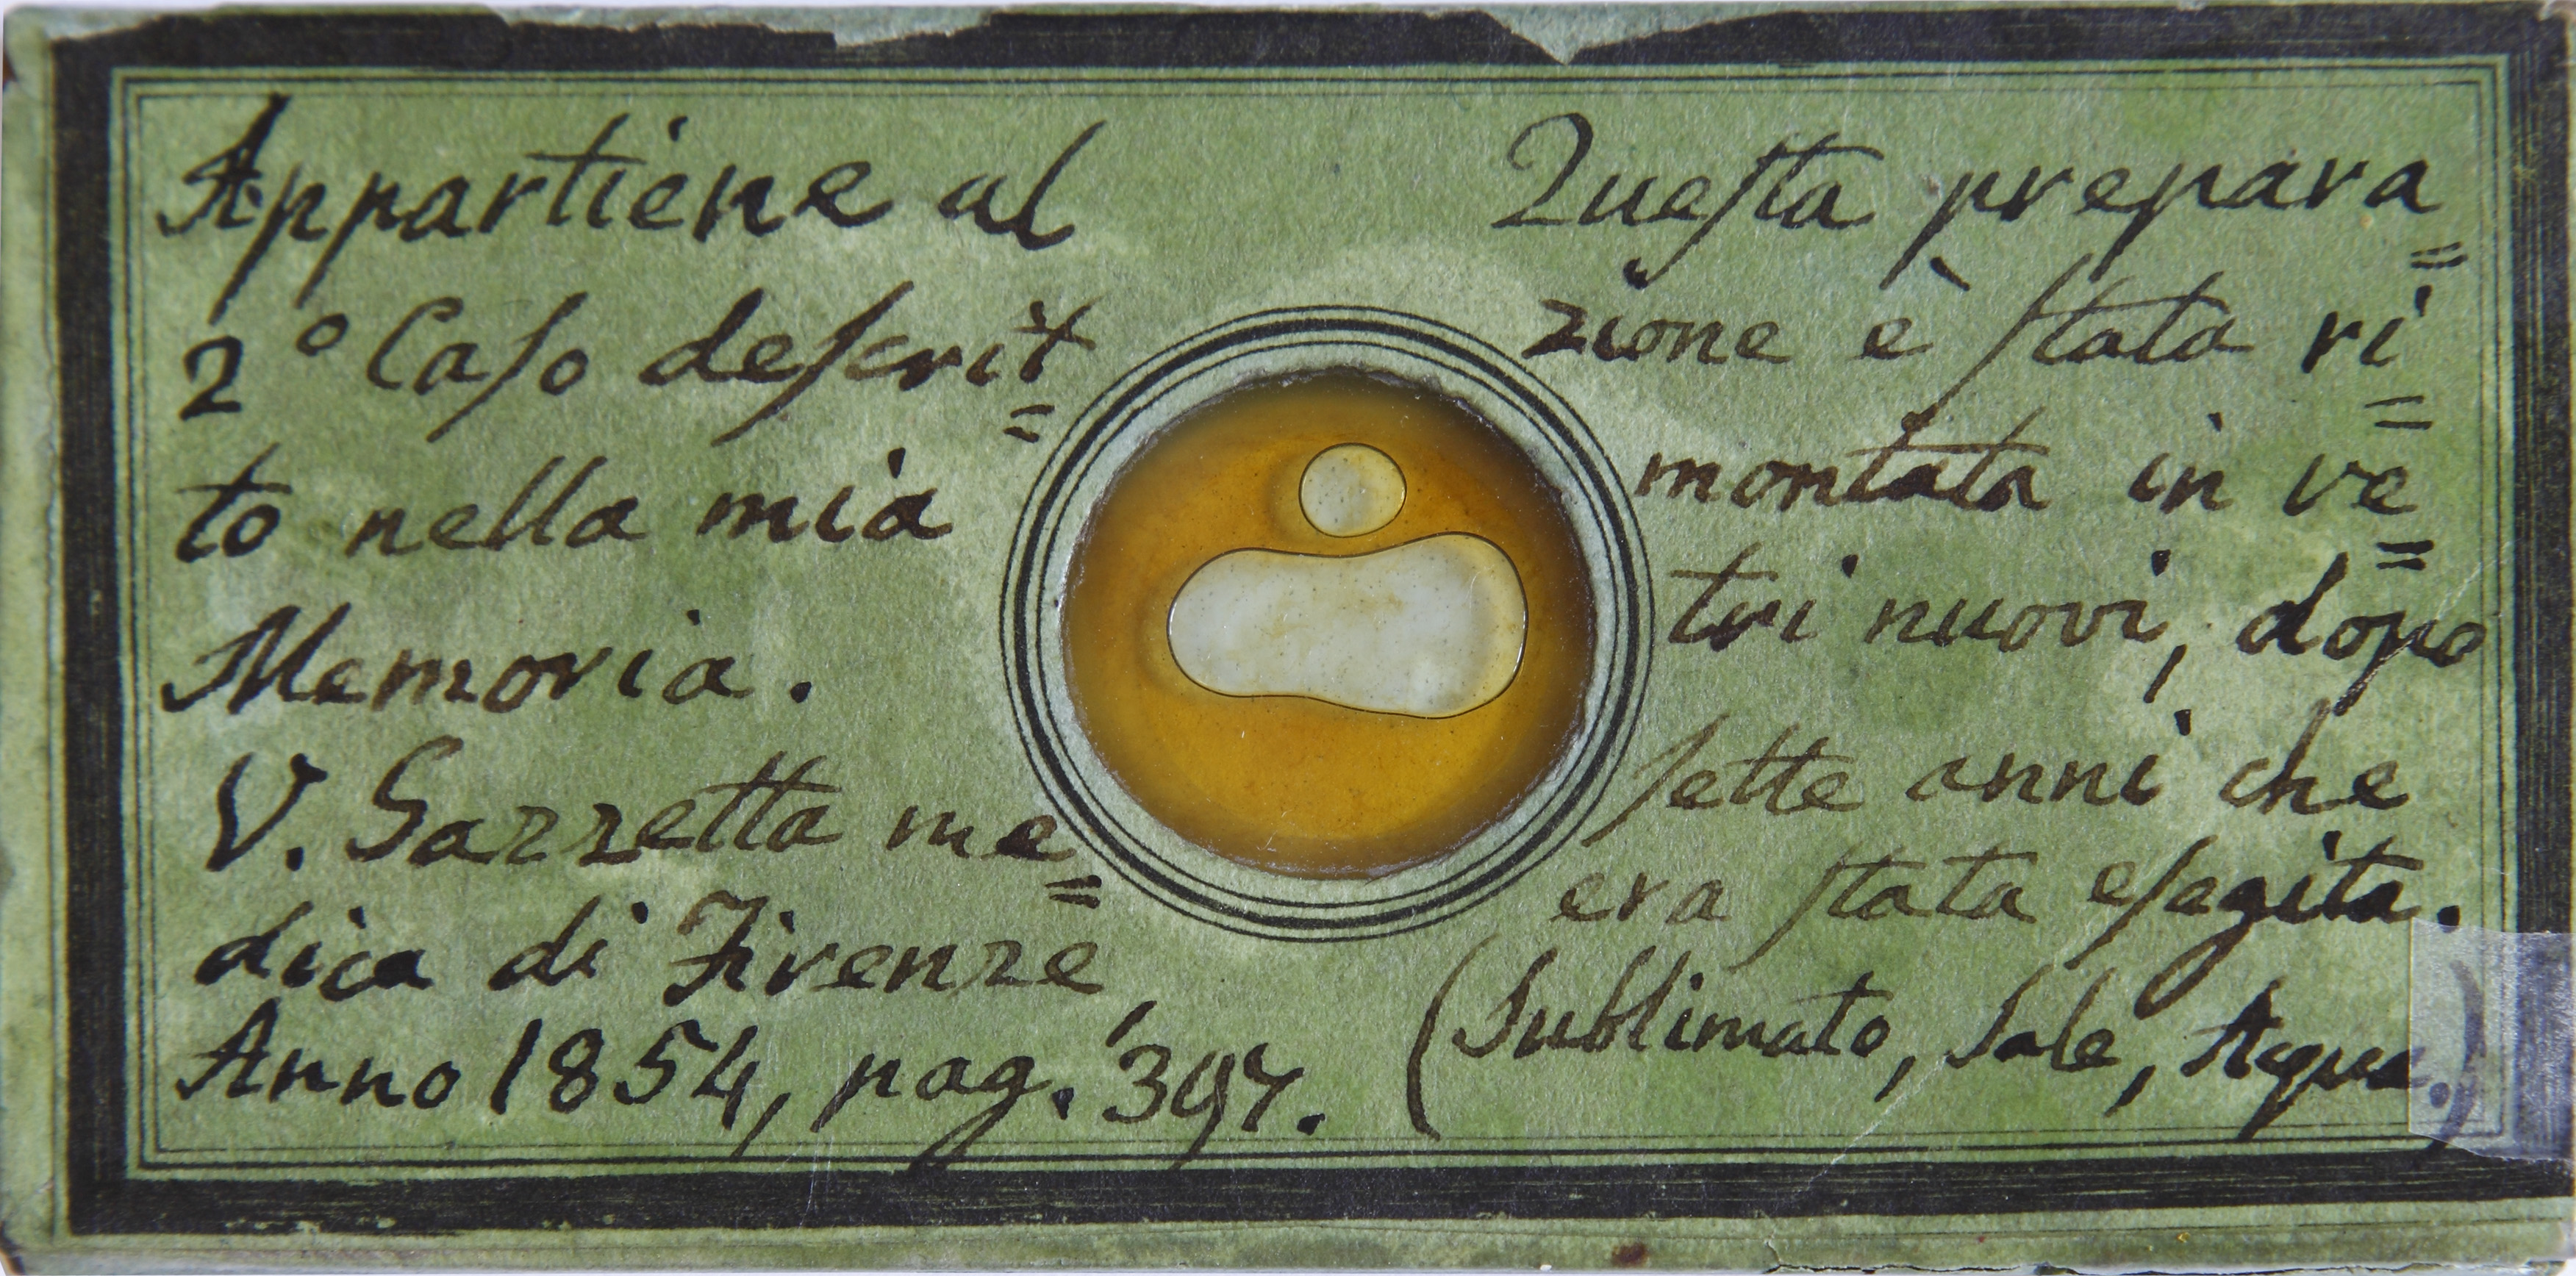 Appartiene al
2° Caso descrit=
to nella mia
Memoria.
V. Gazzetta me=
dica di Firenze,
Anno 1854, pag. 397.
Questa prepara=
zione è stata ri=
montata in ve=
tri nuovi, dopo
sette anni che
era stata esegita.
(Sublimato, Sale, Acqua.)